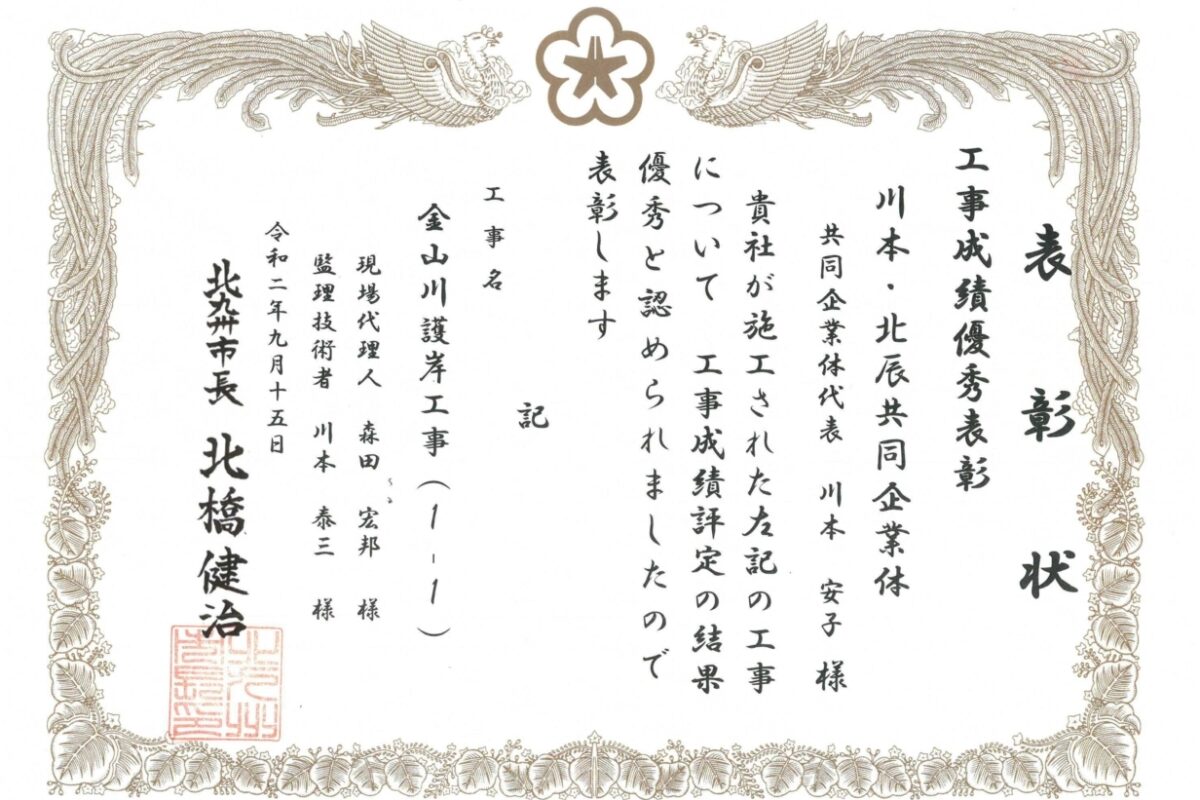 表彰状
工事成績優秀表彰
川本・北辰共同企業体
共同企業体代表 川本 安子 様
貴社が施工された左記の工事
について 工事成績評定の結果
優秀と認められましたので
表彰します
記
工事名
金山川護岸工事(1-1)
現場代理人 森田 宏邦 様
監理技術者 川本 泰三 様
令和二年九月十五日
北九州市長 北橋健治